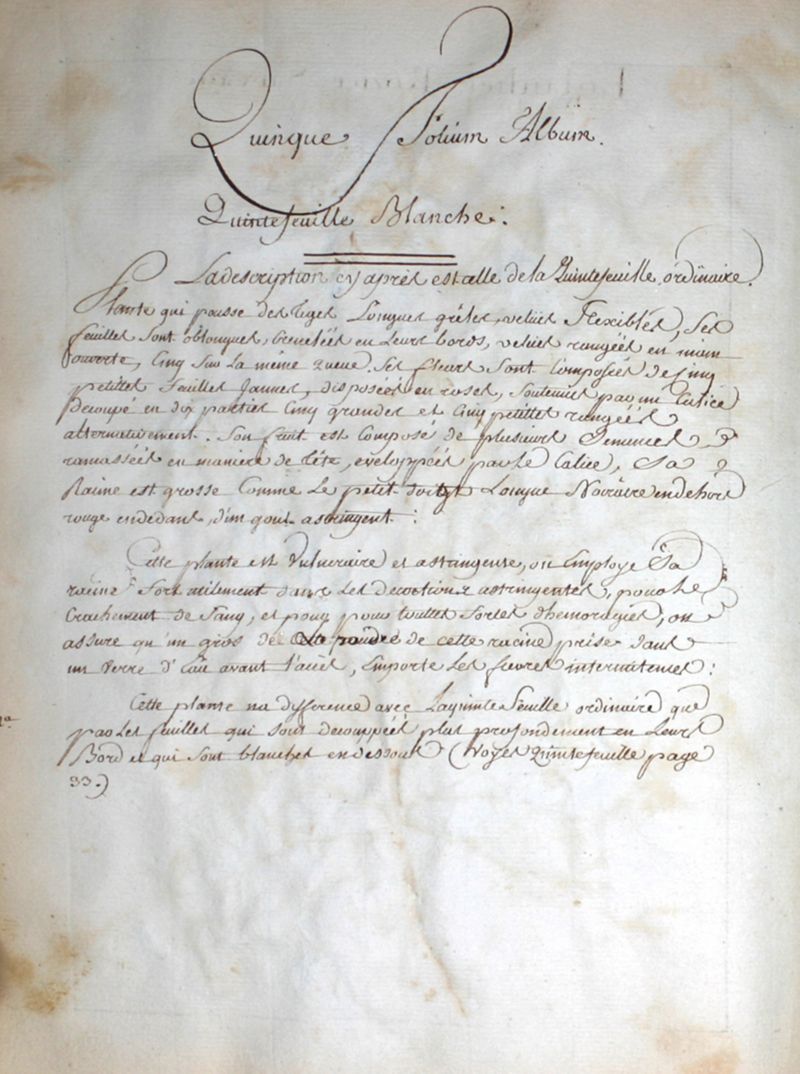 Quinque Folium Album.
Quintefeuille Blanche.
La description cy après est celle de la Quintefeuille ordinaire.
Plante qui pousse des tiges Longues grêles, velües Flexibles, Ses
feuilles Sont oblongues, Crenelées en Leurs bords, velües rangées en main
ouverte, Cinq Sur La même queue. Ses fleurs Sont Composées de Cinq
petittes Feuilles Jaunes, disposées en roses, Soutenües par un Calice
decoupé en dix parties Cinq grandes et Cinq petittes rangées
alternativement. Son fruit est Composé de plusieurs Semences
ramassées en maniere de tête, eveloppées par le Calice, Sa
Racine est grosse Comme Le petit doigt Longue Noirâtre en dehors
rouge en dedans, d'un gout astringent :
Cette plante est Vulneraire et astringente, on Employe Sa
racine Fort utilement dans Les decoctions astringentes, pour Le
Crachement de Sang, et pour toutes Sortes d'hemoragies, on
assure qu'un gros de poudre de cette racine prise dans
un Verre d'Eau avant l'accès, Emporte Les fievres intermitentes :
Cette plante na difference avec La quintefeuille ordinaire que
par Les feuilles qui Sont decouppées plus profondement en Leurs
Bord et qui Sont blanches en dessous (Voyes Quintefeuille page
33.)